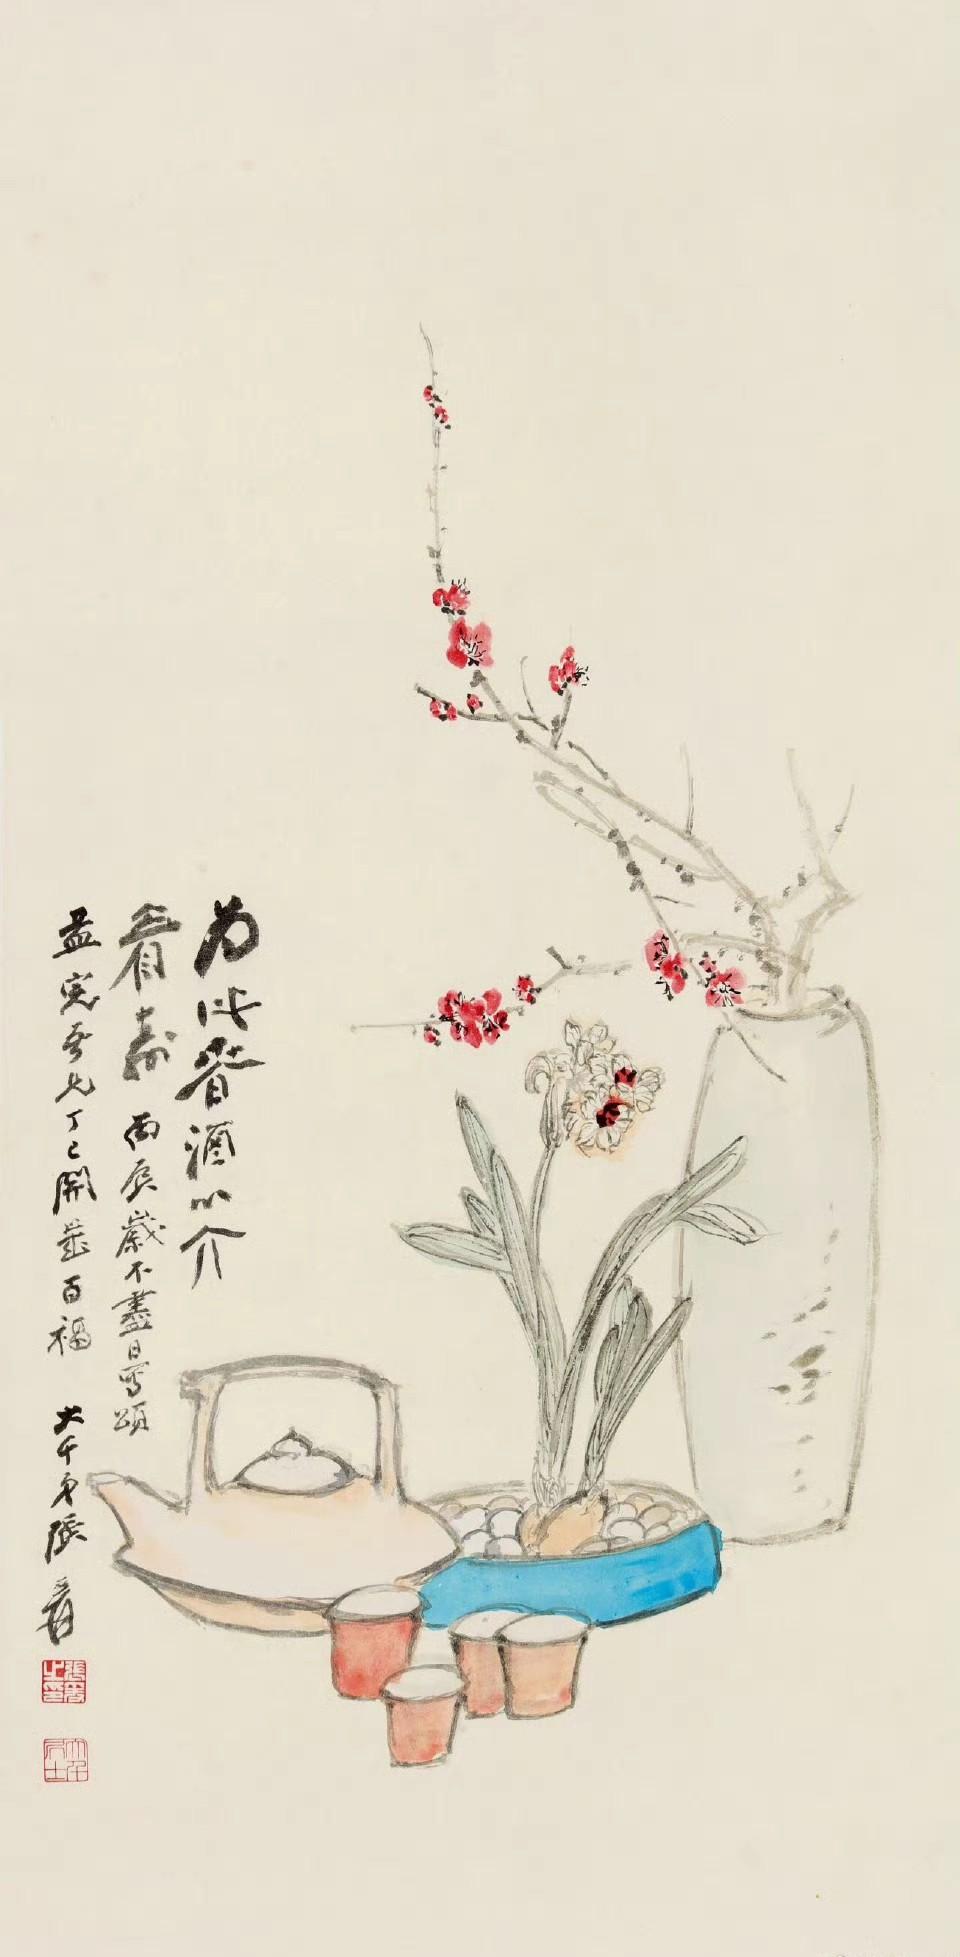 为此春酒以介
眉壽 丙辰歲不盡日寫頌
孟寔吾兄丁巳開歲百福 大千弟張爰
張爰之印
大千居士